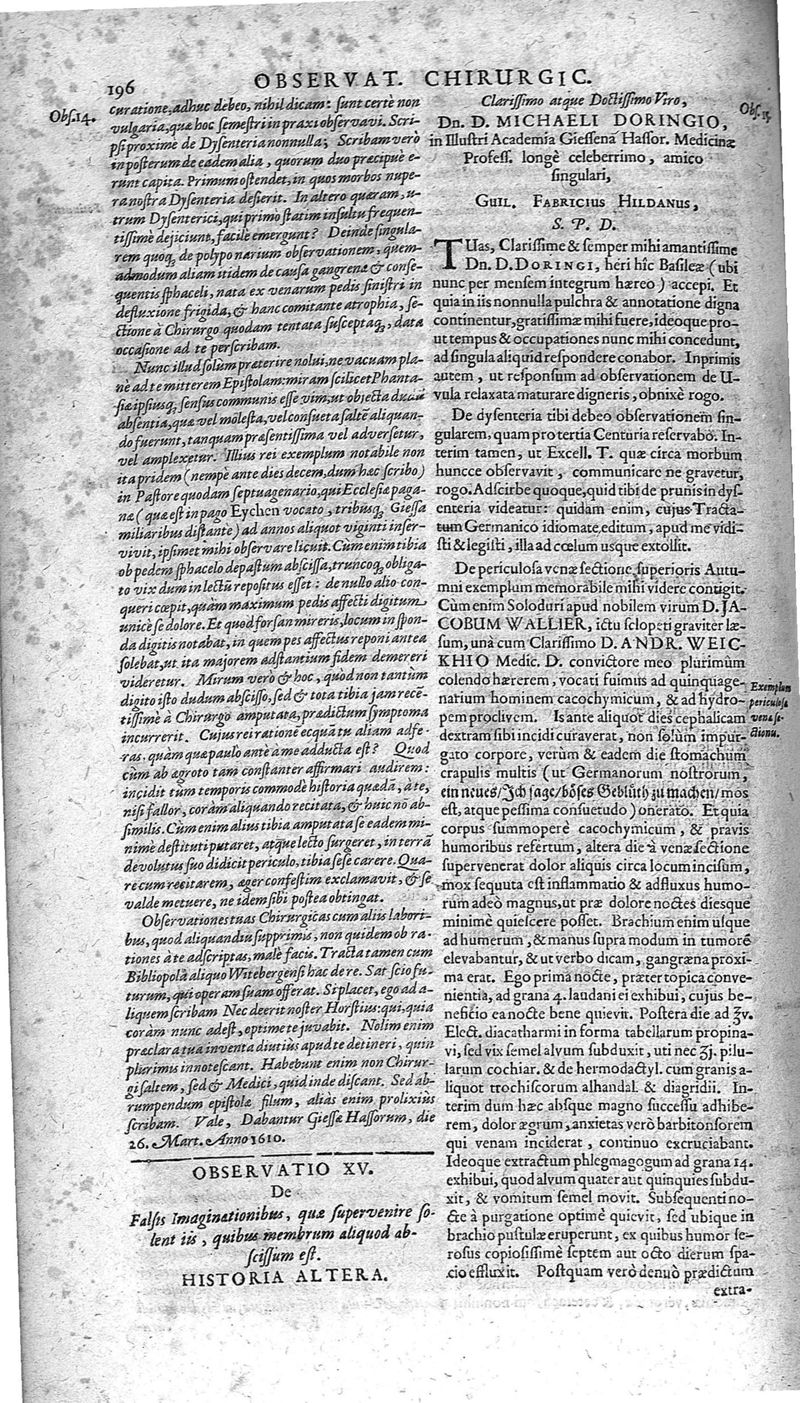 196
OBSERVAT. CHIRURGIC.
Obs. 14.
curatione, adhuc debeo, nihil dicam: sunt certè non
vulgaria, quæ hoc semestri in praxi observavi. Scri-
psi proximè de Dysenteria nonnulla; Scribam verò
in posterum de eadem alia, quorum duo præcipuè e-
runt capita. Primum ostendet, in quos morbos nupe-
ra nostra Dysenteria desierit. In altero quæram, u-
trum Dysenterici, qui primo statim insultu frequen-
tissimè dejiciunt, facilè emergunt? Deinde singula-
rem quoq; de polypo narium observationem, quem-
admodum aliam itidem de causa gangrenæ & conse-
quentis sphaceli, nata ex venarum pedis sinistri in
defluxione frigida, & hanc comitante atrophia, se-
ctione à Chirurgo quodam tentata susceptaq;, data
occasione ad te perscribam.
Nunc illud solùm præterire nolui, ne vacuam pla-
nè ad te mitterem Epistolam: miram scilicet Phanta-
siæ ipsiusq; sensus communis esse vim; ut objecta ducat
absentia, quæ vel molesta, vel consueta saltē aliquan-
do fuerunt, tanquam præsentissima vel adversetur,
vel amplexetur. Illius rei exemplum notabile non
ita pridem (nempè ante dies decem, dum hæc scribo)
in Pastore quodam septuagenario, qui Ecclesiæ paga-
næ (quæ est in pago Eychen vocato, tribusq; Giessa
miliaribus distante) ad annos aliquot viginti inser-
vivit, ipsimet mihi observare licuit. Cum enim tibia
ob pedem sphacelo depastum abscissa, truncoq; obliga-
to vix dum in lectū repositus esset: de nullo alio con-
queri cœpit, quàm maximum pedis affecti digitum
unicè se dolore. Et quod forsan mireris, locum in spon-
da digitis notabat, in quem pes affectus reponi antea
solebat, ut ita majorem adstantium fidem demereri
videretur. Mirum verò & hoc, quòd non tantùm
digito isto dudum abscisso, sed & tota tibia jam recē-
tissimè à Chirurgo amputata, prædictum symptoma
incurrerit. Cujus rei rationē ecqua tu aliam adfe-
ras, quàm quæ paulo antè à me adducta est? Quod
cùm ab ægroto tam constanter affirmari audirem:
incidit tum temporis commodè historia quædā, à te,
nisi fallor, coràm aliquando recitata, & huic nō ab-
similis. Cùm enim alius tibia amputata se eadem mi-
nimè destitui putaret, atque lecto surgeret, in terrā
devolutus suo didicit periculo, tibia sese carere. Qua-
re cum recitarem, æger confestim exclamavit, & se
valde metuere, ne idem sibi postea obtingat.
Observationes tuas Chirurgicas cum aliis labori-
bus, quod aliquandiu supprimis, non quidem ob ra-
tiones à te adscriptas, malè facis. Tracta tamen cum
Bibliopolâ aliquo Witebergensi hac de re. Sat scio fu-
turum, qui operam suam offerat. Si placet, ego ad a-
liquem scribam Nec deerit noster Horstius: qui, quia
coràm nunc adest, optimè te juvabit. Nolim enim
præclara tua inventa diutiùs apud te detineri, quin
plurimis innotescant. Habebunt enim non Chirur-
gi saltem, sed & Medici, quid inde discant. Sed ab-
rumpendum epistolæ filum, aliàs enim prolixiùs
scribam. Vale, Dabantur Giessæ Hassorum, die
26. Mart. Anno 1610.
OBSERVATIO XV.
De
Falsis Imaginationibus, quæ supervenire so-
lent iis, quibus membrum aliquod ab-
scissum est.
HISTORIA ALTERA.
Clarissimo atque Doctissimo Viro,
Obs. 15.
Dn. D. MICHAELI DORINGIO,
in Illustri Academia Giessenâ Hassor. Medicinæ
Profess. longè celeberrimo, amico
singulari,
GUIL. FABRICIUS HILDANUS,
S. P. D.
TUas, Clarissime & semper mihi amantissime
Dn. D. DORINGI, heri hîc Basileæ (ubi
nunc per mensem integrum hæreo) accepi. Et
quia in iis nonnulla pulchra & annotatione digna
continentur, gratissimæ mihi fuere, ideoque pro-
ut tempus & occupationes nunc mihi concedunt,
ad singula aliquid respondere conabor. Inprimis
autem, ut responsum ad observationem de U-
vula relaxata maturare digneris, obnixè rogo.
De dysenteria tibi debeo observationem sin-
gularem, quam pro tertia Centuria reservabo. In-
terim tamen, ut Excell. T. quæ circa morbum
huncce observavit, communicare ne gravetur,
rogo. Adscribe quoque, quid tibi de prunis in dys-
enteria videatur: quidam enim, cujus Tracta-
tum Germanico idiomate editum, apud me vidi-
sti & legisti, illa ad cœlum usque extollit.
De periculosa venæ sectione, superioris Autu-
mni exemplum memorabile mihi videre contigit.
Cùm enim Soloduri apud nobilem virum D. JA-
COBUM WALLIER, ictu sclopeti graviter læ-
sum, unà cum Clarissimo D. ANDR. WEIC-
KHIO Medic. D. convictore meo plurimùm
colendo hærerem, vocati fuimus ad quinquage-
narium hominem cacochymicum, & ad hydro-
pem proclivem. Is ante aliquot dies cephalicam
dextram sibi incidi curaverat, non solùm impur-
gato corpore, verùm & eadem die stomachum
crapulis multis (ut Germanorum nostrorum,
ein neues/ Jch sage/ böses Geblüth zu machen/ mos
est, atque pessima consuetudo) onerato. Et quia
corpus summoperè cacochymicum, & pravis
humoribus refertum, altera die à venæ sectione
supervenerat dolor aliquis circa locum incisum,
mox sequuta est inflammatio & adfluxus humo-
rum adeò magnus, ut præ dolore noctes diesque
minimè quiescere posset. Brachium enim usque
ad humerum, & manus supra modum in tumorē
elevabantur, & ut verbo dicam, gangræna proxi-
ma erat. Ego prima nocte, præter topica conve-
nientia, ad grana 4. laudani ei exhibui, cujus be-
neficio ea nocte bene quievit. Postera die ad ʒv.
Elect. diacatharmi in forma tabellarum propina-
vi, sed vix semel alvum subduxit, uti nec ʒj. pilu-
larum cochiar. & de hermodactyl. cum granis a-
liquot trochiscorum alhandal. & diagridii. In-
terim dum hæc absque magno successu adhibe-
rem, dolor ægrum, anxietas verò barbitonsorem
qui venam inciderat, continuo excruciabant.
Ideoque extractum phlegmagogum ad grana 14.
exhibui, quod alvum quater aut quinquies subdu-
xit, & vomitum semel movit. Subsequenti no-
cte à purgatione optimè quievit, sed ubique in
brachio pustulæ eruperunt, ex quibus humor se-
rosus copiosissimè septem aut octo dierum spa-
cio effluxit. Postquam verò denuò prædictum
extra-
Exemplum
periculosæ
venæ se-
ctionis.